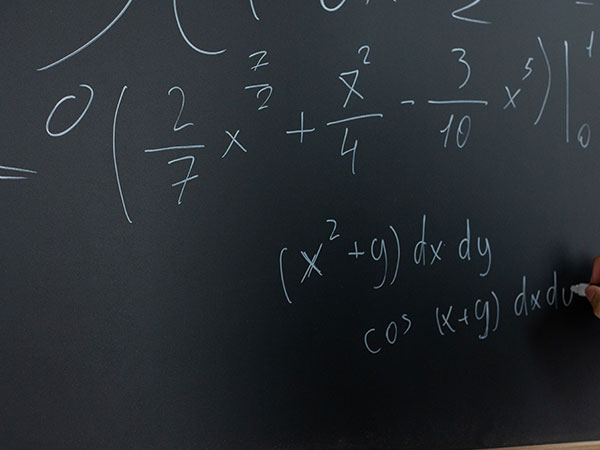 = 0 (2/7 x^(7/2) + x^2/4 - 3/10 x^5)|_0^1
(x^2+y) dx dy
cos (x+y) dx dy